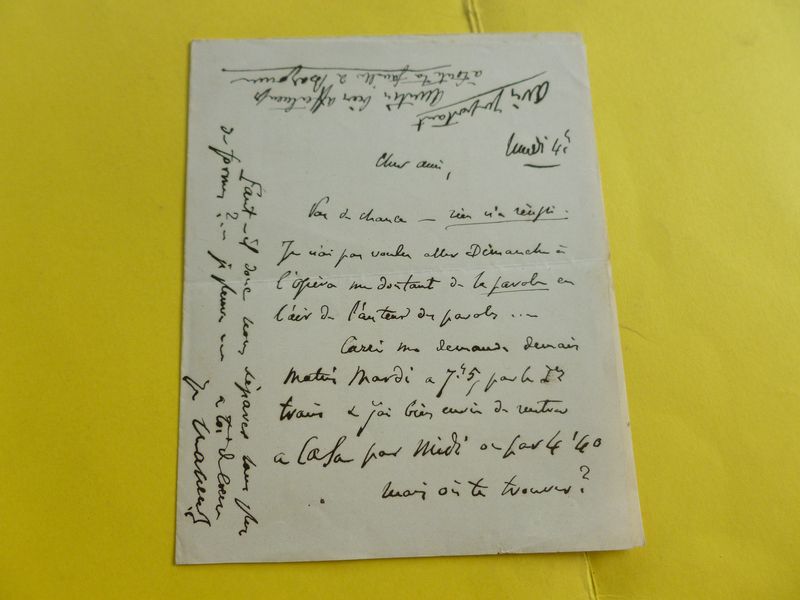 lundi 4h
Cher ami,
Pas de chance — rien n'a réussi.
Je n'ai pas voulu aller Dimanche à
l'opéra me doutant de la parole en
l'air de l'auteur des paroles ...
me demande demain
matin Mardi a 7h5, par le 1er
train & j'ai bien envie de rentrer
a par Midi ou par 4h40
mais où te trouver?
Faut-il donc nous séparer sans plus
de formes?
a toi de coeur
avis important
a toute ta famille à